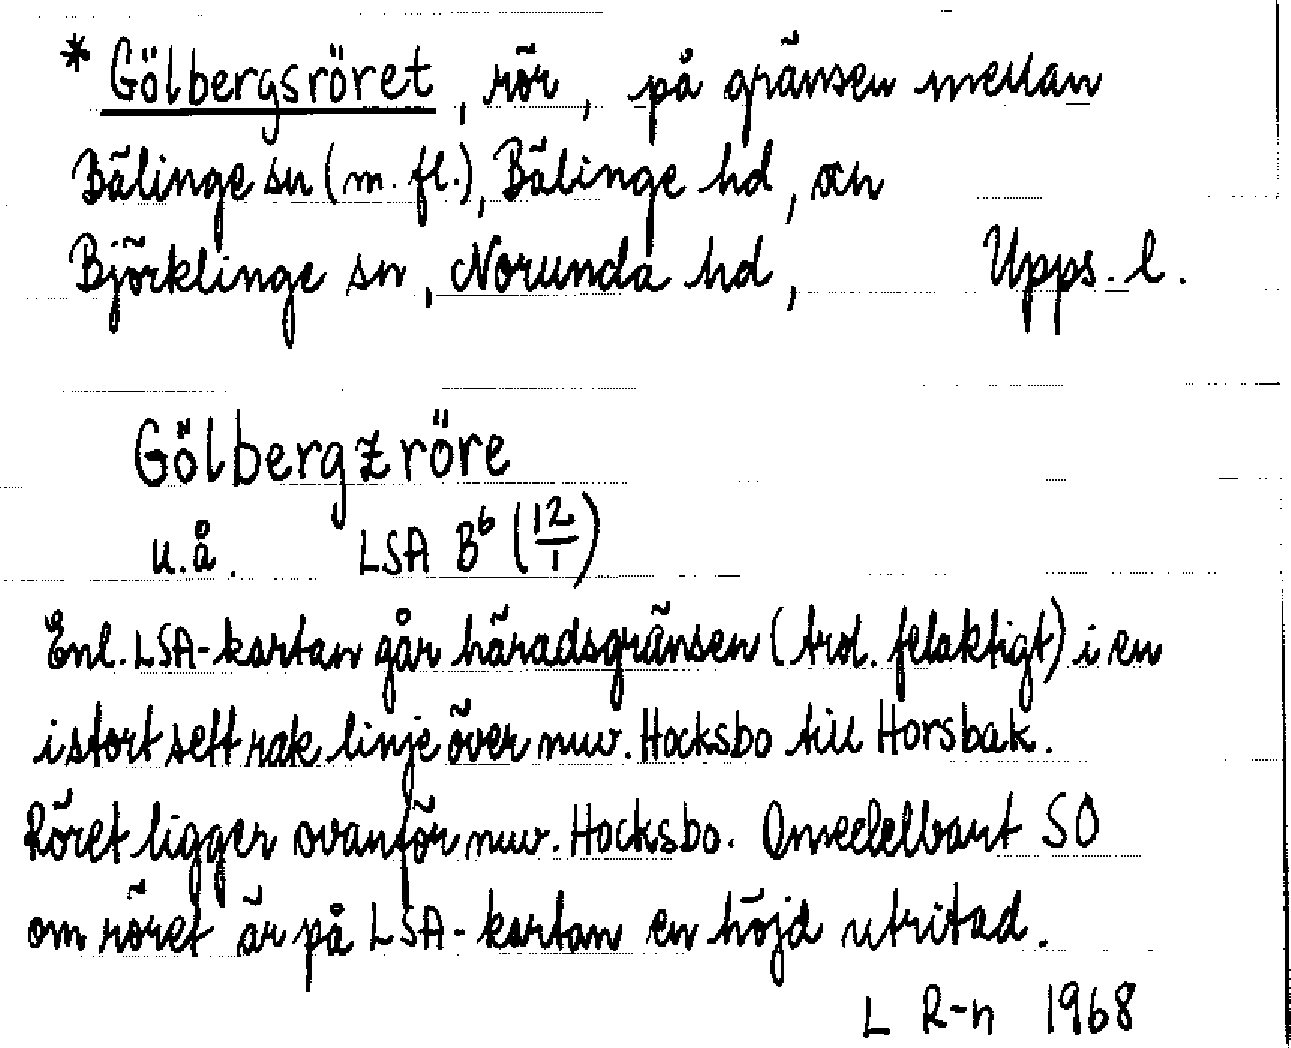 * Gölbergsröret, rör, på gränsen mellan
Bälinge sn (m. fl.), Bälinge hd, och
Björklinge sn, Norunda hd, Upps. l.
Gölbergzröre
u.å. LSA B⁶ (12/1)
Enl. LSA-kartan går häradsgränsen (trol. felaktigt) i en
i stort sett rak linje över nuv. Hocksbo till Horsbäck.
Röret ligger ovanför nuv. Hocksbo. Omedelbart SO
om röret är på LSA-kartan en höjd utritad.
L R-n 1968